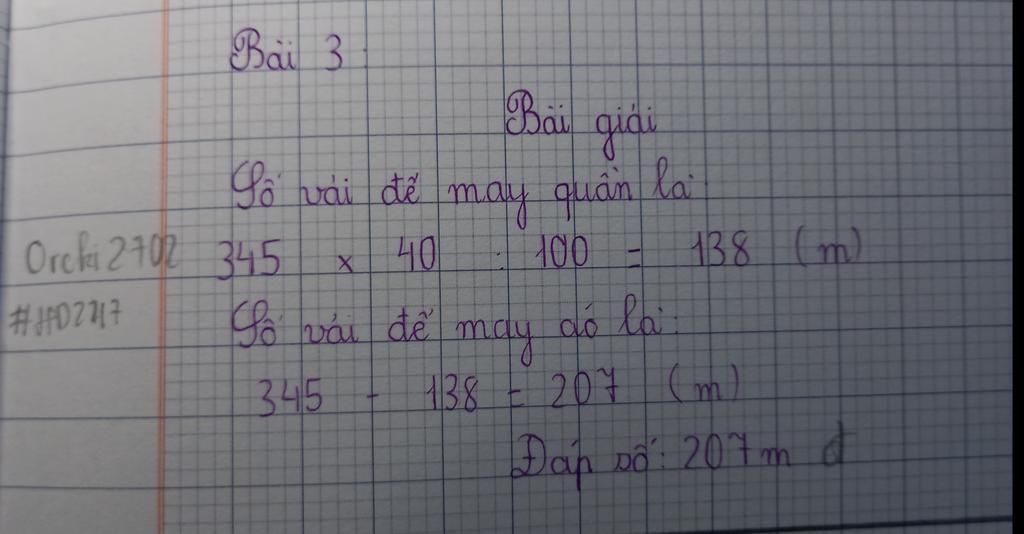 Bài 3
Bài giải
Số vải để may quần là:
Orcki2702 345 x 40 : 100 = 138 (m)
Số vải để may áo là:
345 - 138 = 207 (m)
Đáp số: 207m